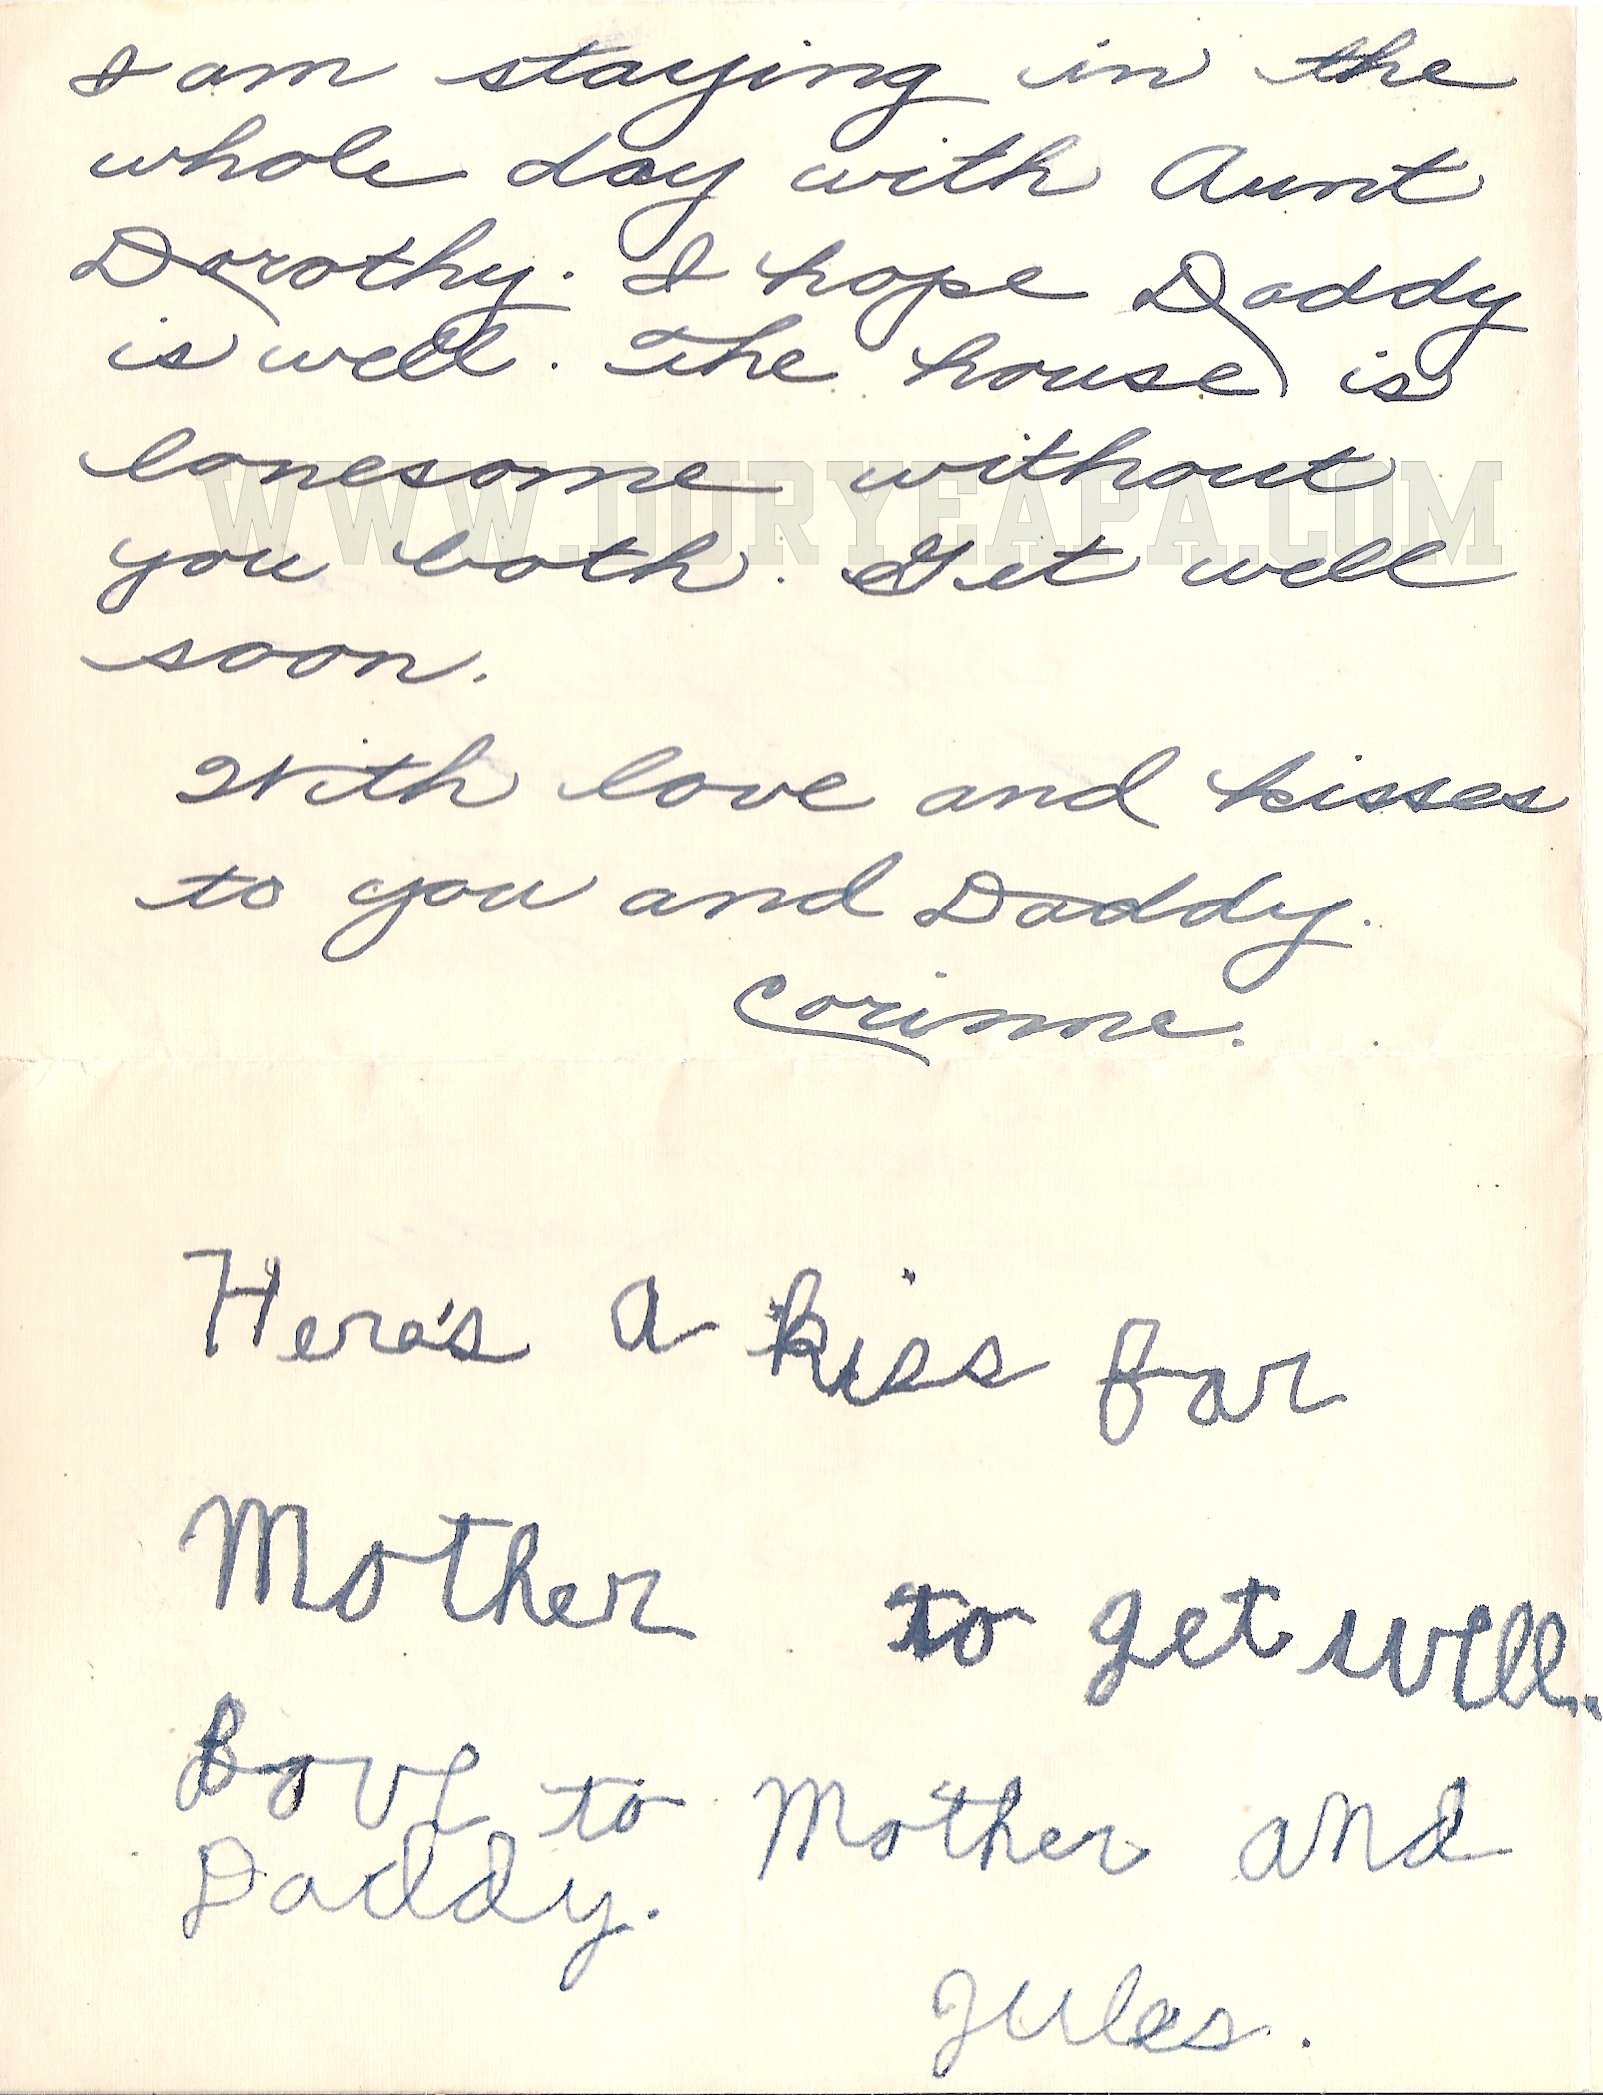 I am staying in the
whole day with Aunt
Dorothy. I hope Daddy
is well. The house is
lonesome without
WWW.DURYEAPA.COM
you both. Get well
soon.
With love and kisses
to you and Daddy.
Corinne.
Here's a kiss for
Mother to get well.
Love to Mother and
Daddy.
Jules.